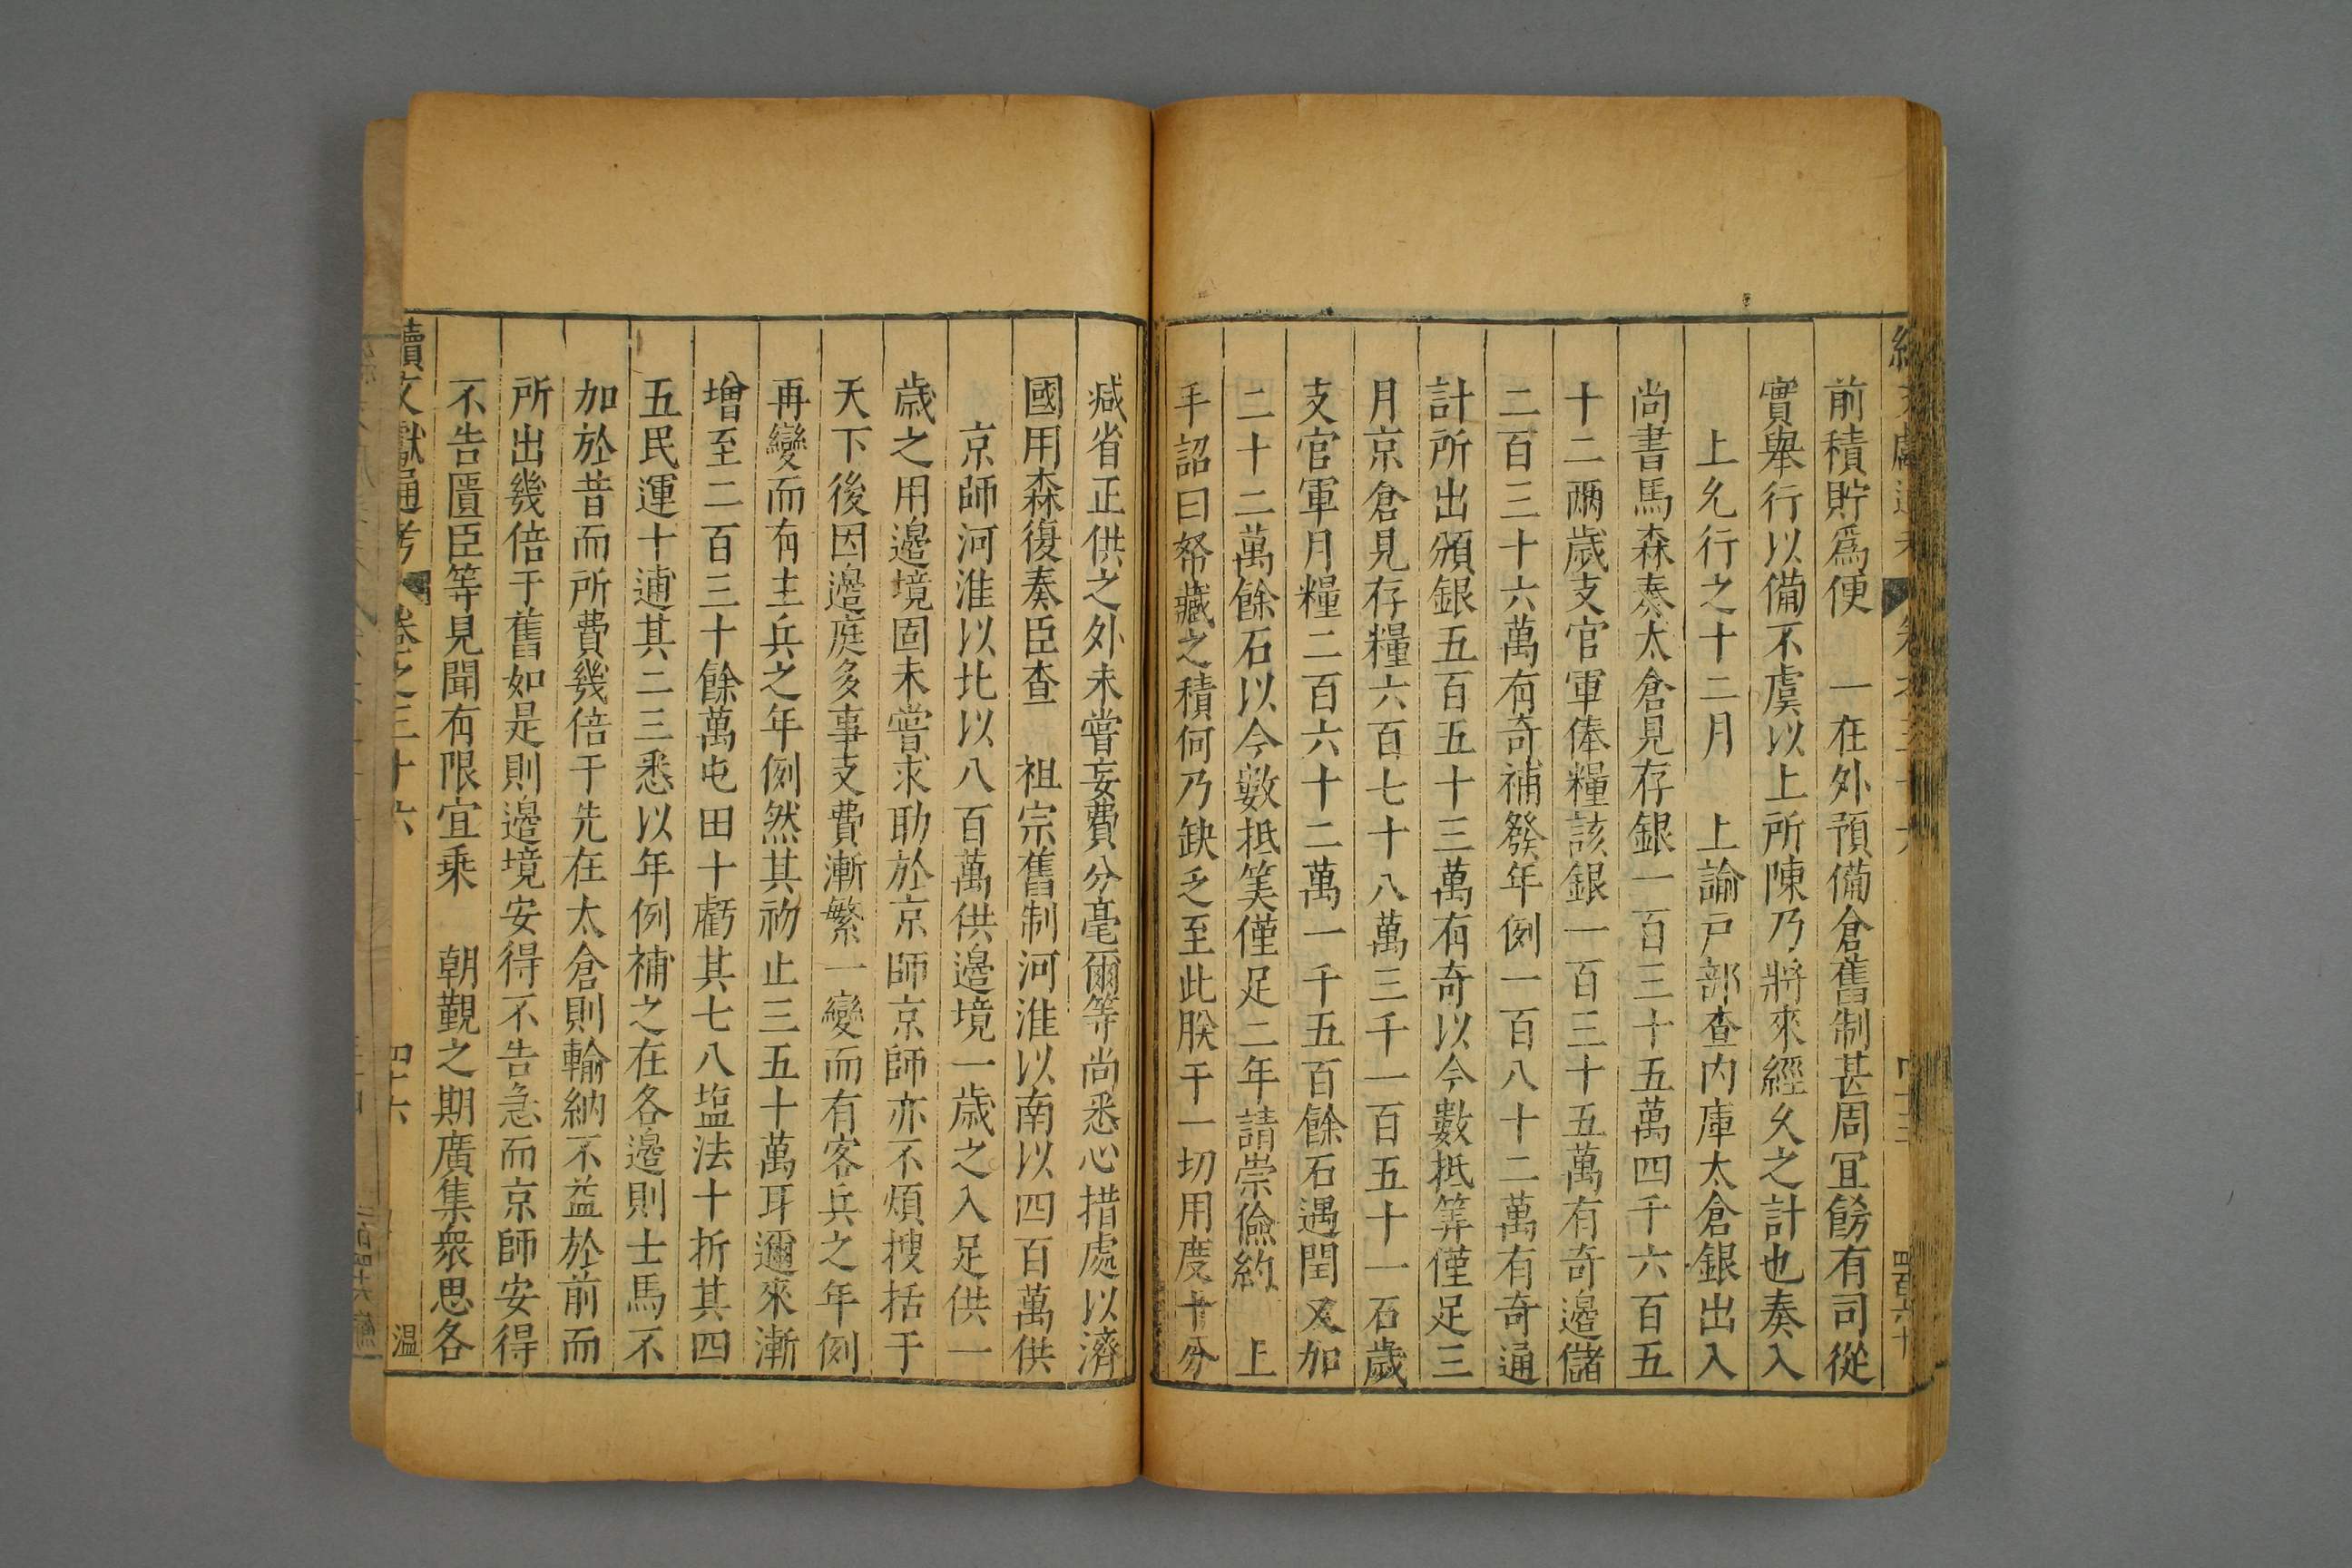 前積貯爲便　一在外預備倉舊制甚周宜餝有司從
實舉行以備不虞以上所陳乃將來經久之計也奏入
上允行之十二月　上諭戸部查内庫太倉銀出入
尚書馬森奏太倉見存銀一百三十五萬四千六百五
十二兩歲支官軍俸糧該銀一百三十五萬有奇邊儲
二百三十六萬有奇補發年例一百八十二萬有奇通
計所出頒銀五百五十三萬有奇以今數抵筭僅足三
月京倉見存糧六百七十八萬三千一百五十一石歲
支官軍月糧二百六十二萬一千五百餘石遇閏又加
二十二萬餘石以今數抵筭僅足二年請崇儉約　上
手詔曰帑藏之積何乃缺乏至此朕于一切用度十分
减省正供之外未嘗妄費分毫爾等尚悉心措處以濟
國用森復奏臣查　祖宗舊制河淮以南以四百萬供
京師河淮以北以八百萬供邊境一歳之入足供一
歳之用邊境固未嘗求助於京師京師亦不煩搜括于
天下後因邉庭多事支費漸繁一變而有客兵之年例
再變而有主兵之年例然其初止三五十萬耳邇來漸
增至二百三十餘萬屯田十虧其七八塩法十折其四
五民運十逋其二三悉以年例補之在各邊則士馬不
加於昔而所費幾倍于先在太倉則輸納不益於前而
所出幾倍于舊如是則邊境安得不告急而京師安得
不告匱臣等見聞有限宜乘　朝覲之期廣集衆思各
續文獻通考　卷之三十六　四十六　温